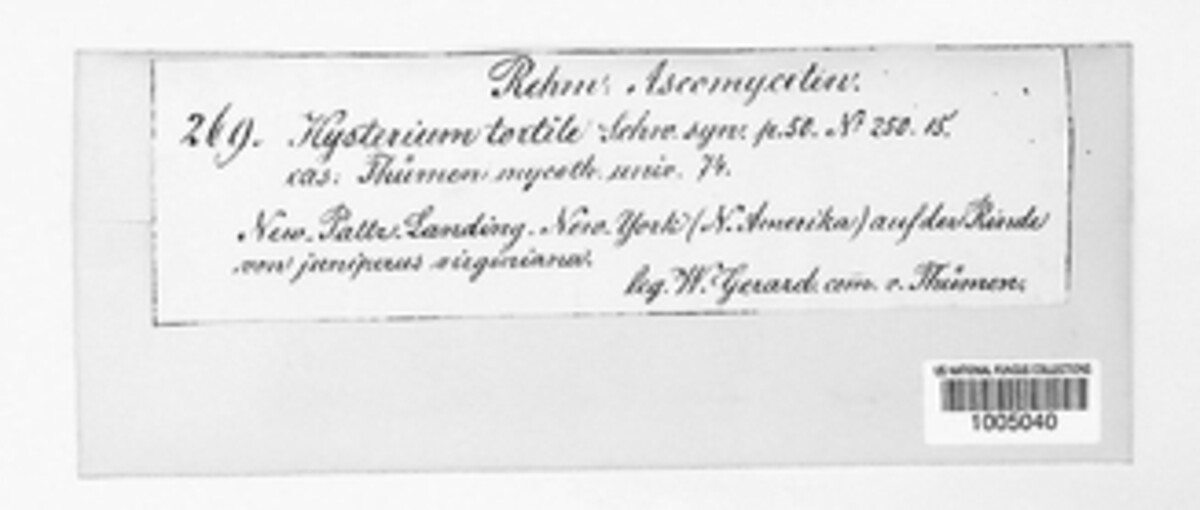 Rehm: Ascomyceten.
269. Hysterium tortile Schw. syn. p. 50. Nº 250. 15.
exs: Thümen mycoth. univ. 74.
New. Paltz. Landing. New. York (N. Amerika) auf der Rinde
von juniperus virginiana.
leg. W. Gerard. com. v. Thümen.
US NATIONAL FUNGUS COLLECTIONS
1005040